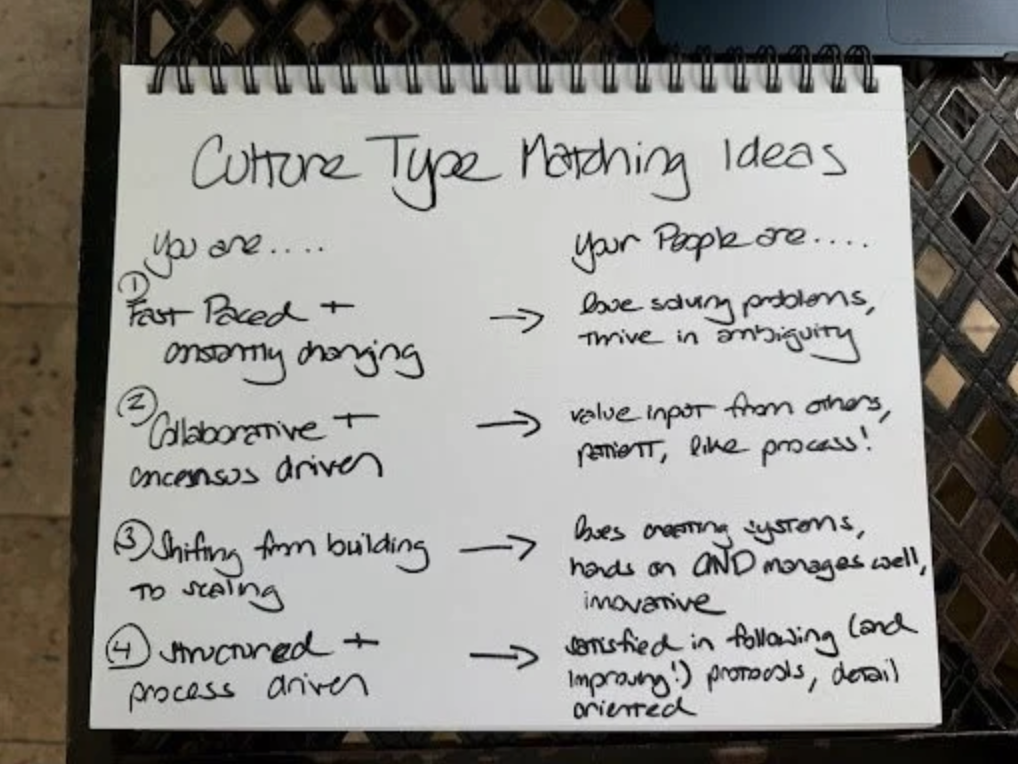 Culture Type Matching Ideas
you are....
your People are....
① Fast Paced +
constantly changing
→ love solving problems,
thrive in ambiguity
② Collaborative +
concensus driven
→ value input from others,
patient, like process!
③ Shifting from building
to scaling
→ loves creating systems,
hands on AND manages well,
imovative
④ structured +
process driven
→ satisfied in following (and
improving!) protocols, detail
oriented